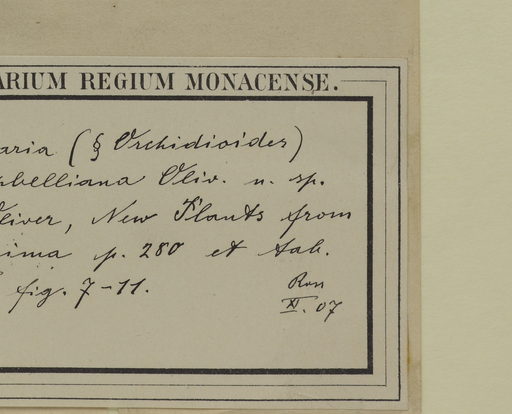 ARIUM REGIUM MONACENSE.
aria (§ Orchidioides)
pbelliana Oliv. n. sp.
Oliver, New Plants from
ima p. 280 et tab.
fig. 7-11.
Ross
XI. 07